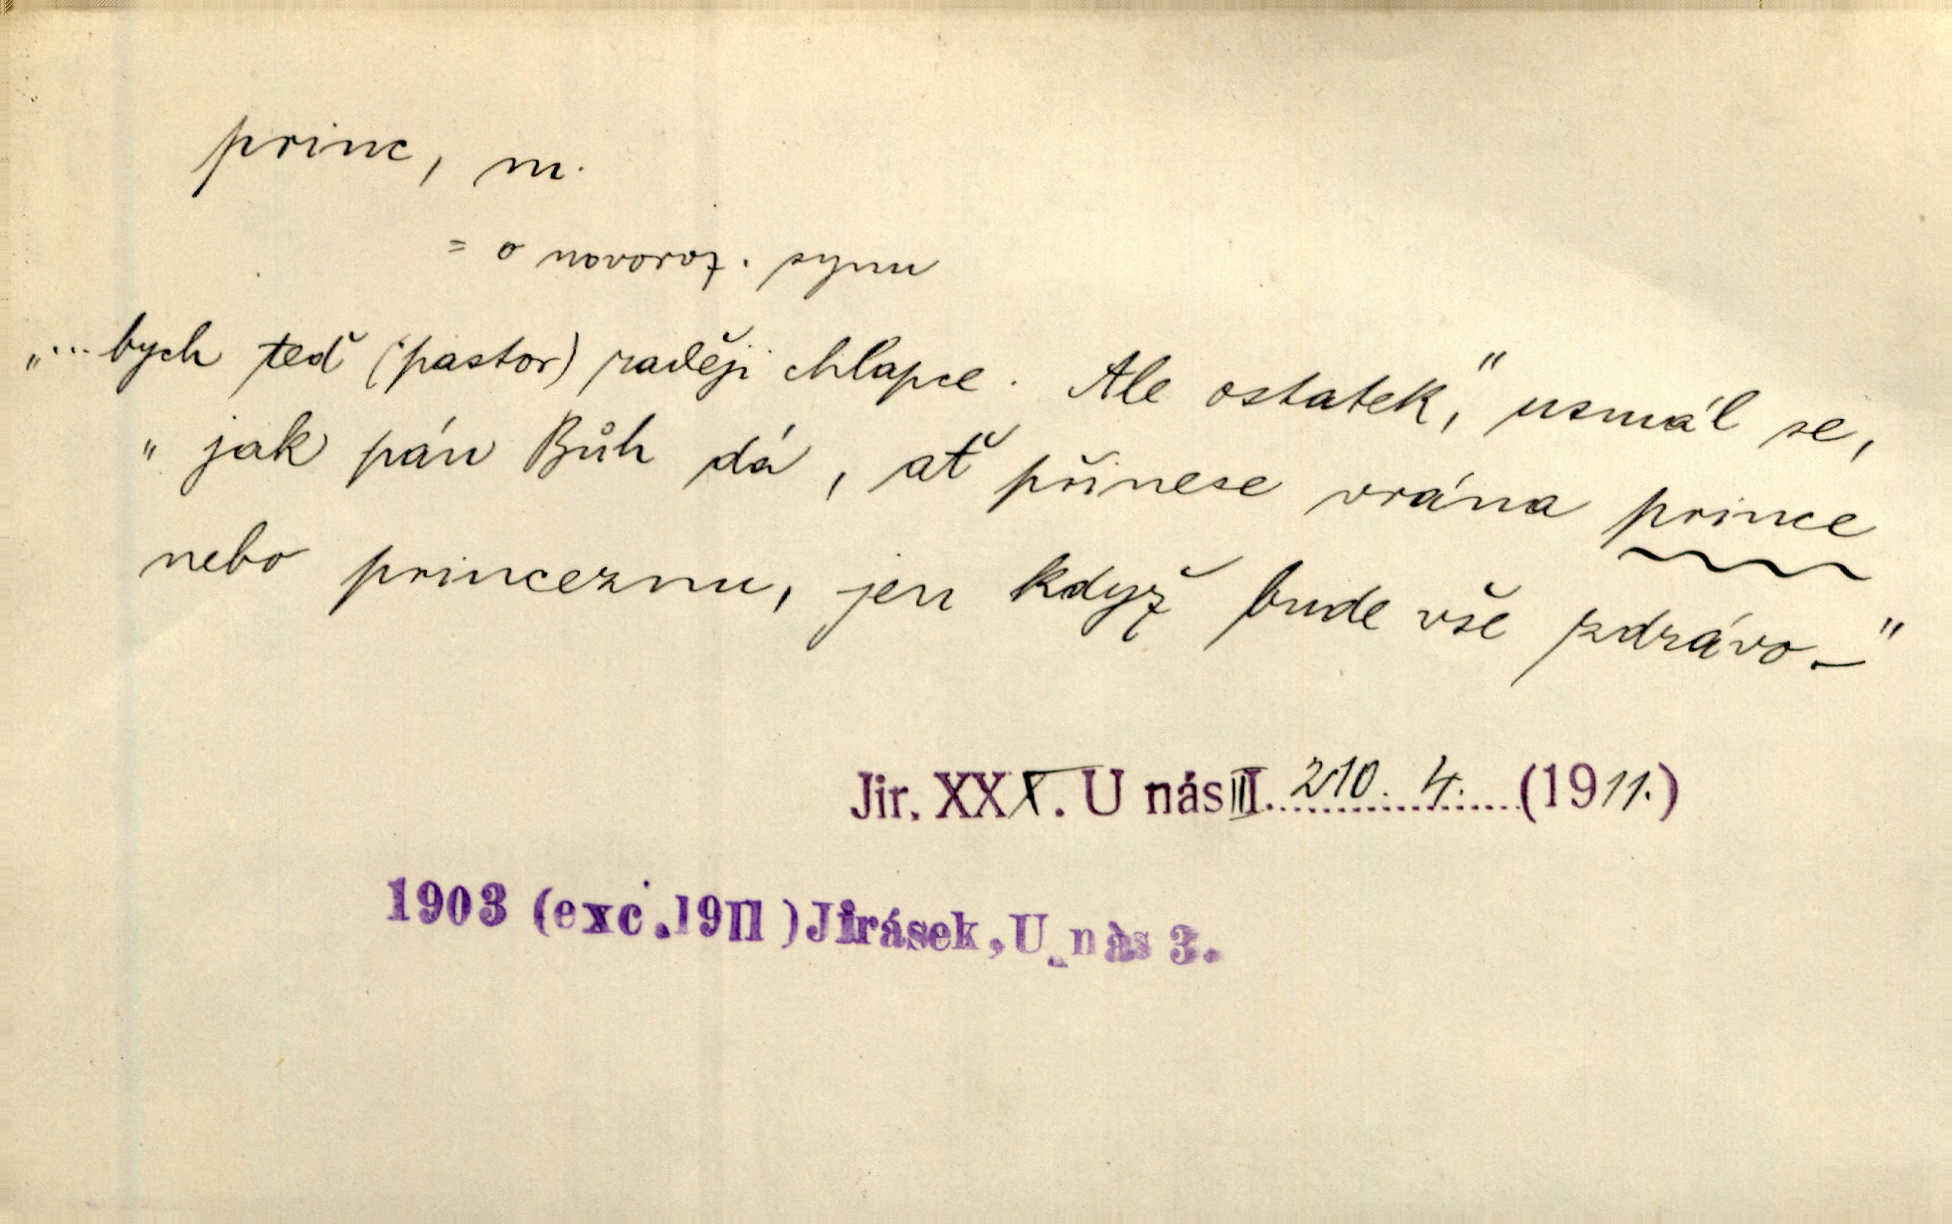 princ, m.
= o novoroz. synu
„... bych teď (pastor) raději chlapce. Ale ostatek," usmál se,
„jak pán Bůh dá, ať přinese vrána prince
nebo princeznu, jen když bude vše zdrávo. –"
Jir. XXX. U nás III. 210. 4. (1911.)
1903 (exc. 1911) Jirásek, U nás 3.